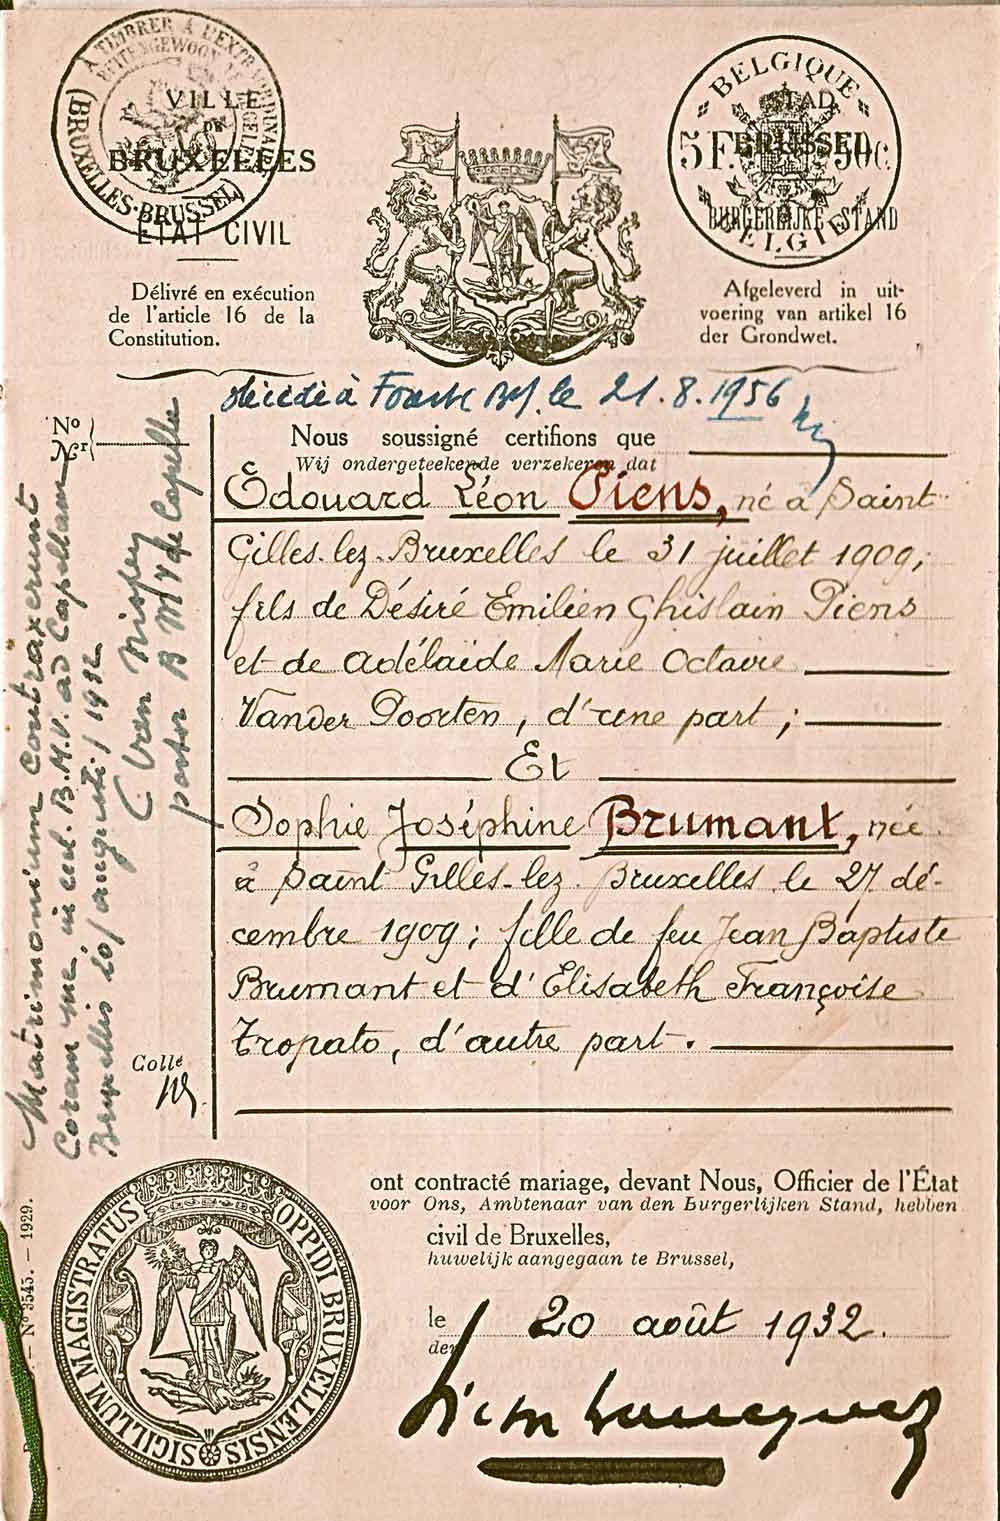 À TIMBRER À L'EXTRAORDINAIRE
BUITENGEWOON
(BRUXELLES-BRUSSEL)
VILLE
DE
BRUXELLES
ÉTAT CIVIL
Délivré en exécution
de l'article 16 de la
Constitution.
BELGIQUE
5F. 50c.
BELGIE
STAD
BRUSSEL
BURGERLIJKE STAND
Afgeleverd in uit-
voering van artikel 16
der Grondwet.
décédé à le 21.8.1956
No
Nr
Nous soussigné certifions que
Wij ondergeteekende verzekeren dat
Édouard Léon Piens, né à Saint
Gilles-lez-Bruxelles le 31 juillet 1909;
fils de Désiré Emilien Ghislain Piens
et de Adélaïde Marie Octavie
Vander Poorten, d'une part;
Et
Sophie Joséphine Brumant, née
à Saint Gilles-lez-Bruxelles le 27 dé-
cembre 1909; fille de feu Jean Baptiste
Brumant et d'Elisabeth Françoise
Tropato, d'autre part.
Collé
Matrimonium contraxerunt
coram me, in eccl. B.M.V. ad Capellam
Bruxellis 20 augusti 1932
pastor B M V de Capella
ont contracté mariage, devant Nous, Officier de l'État
voor Ons, Ambtenaar van den Burgerlijken Stand, hebben
civil de Bruxelles,
huwelijk aangegaan te Brussel,
le 20 août 1932.
den
SIGILLUM MAGISTRATUS OPPIDI BRUXELLENSIS
No 3545. - 1929.